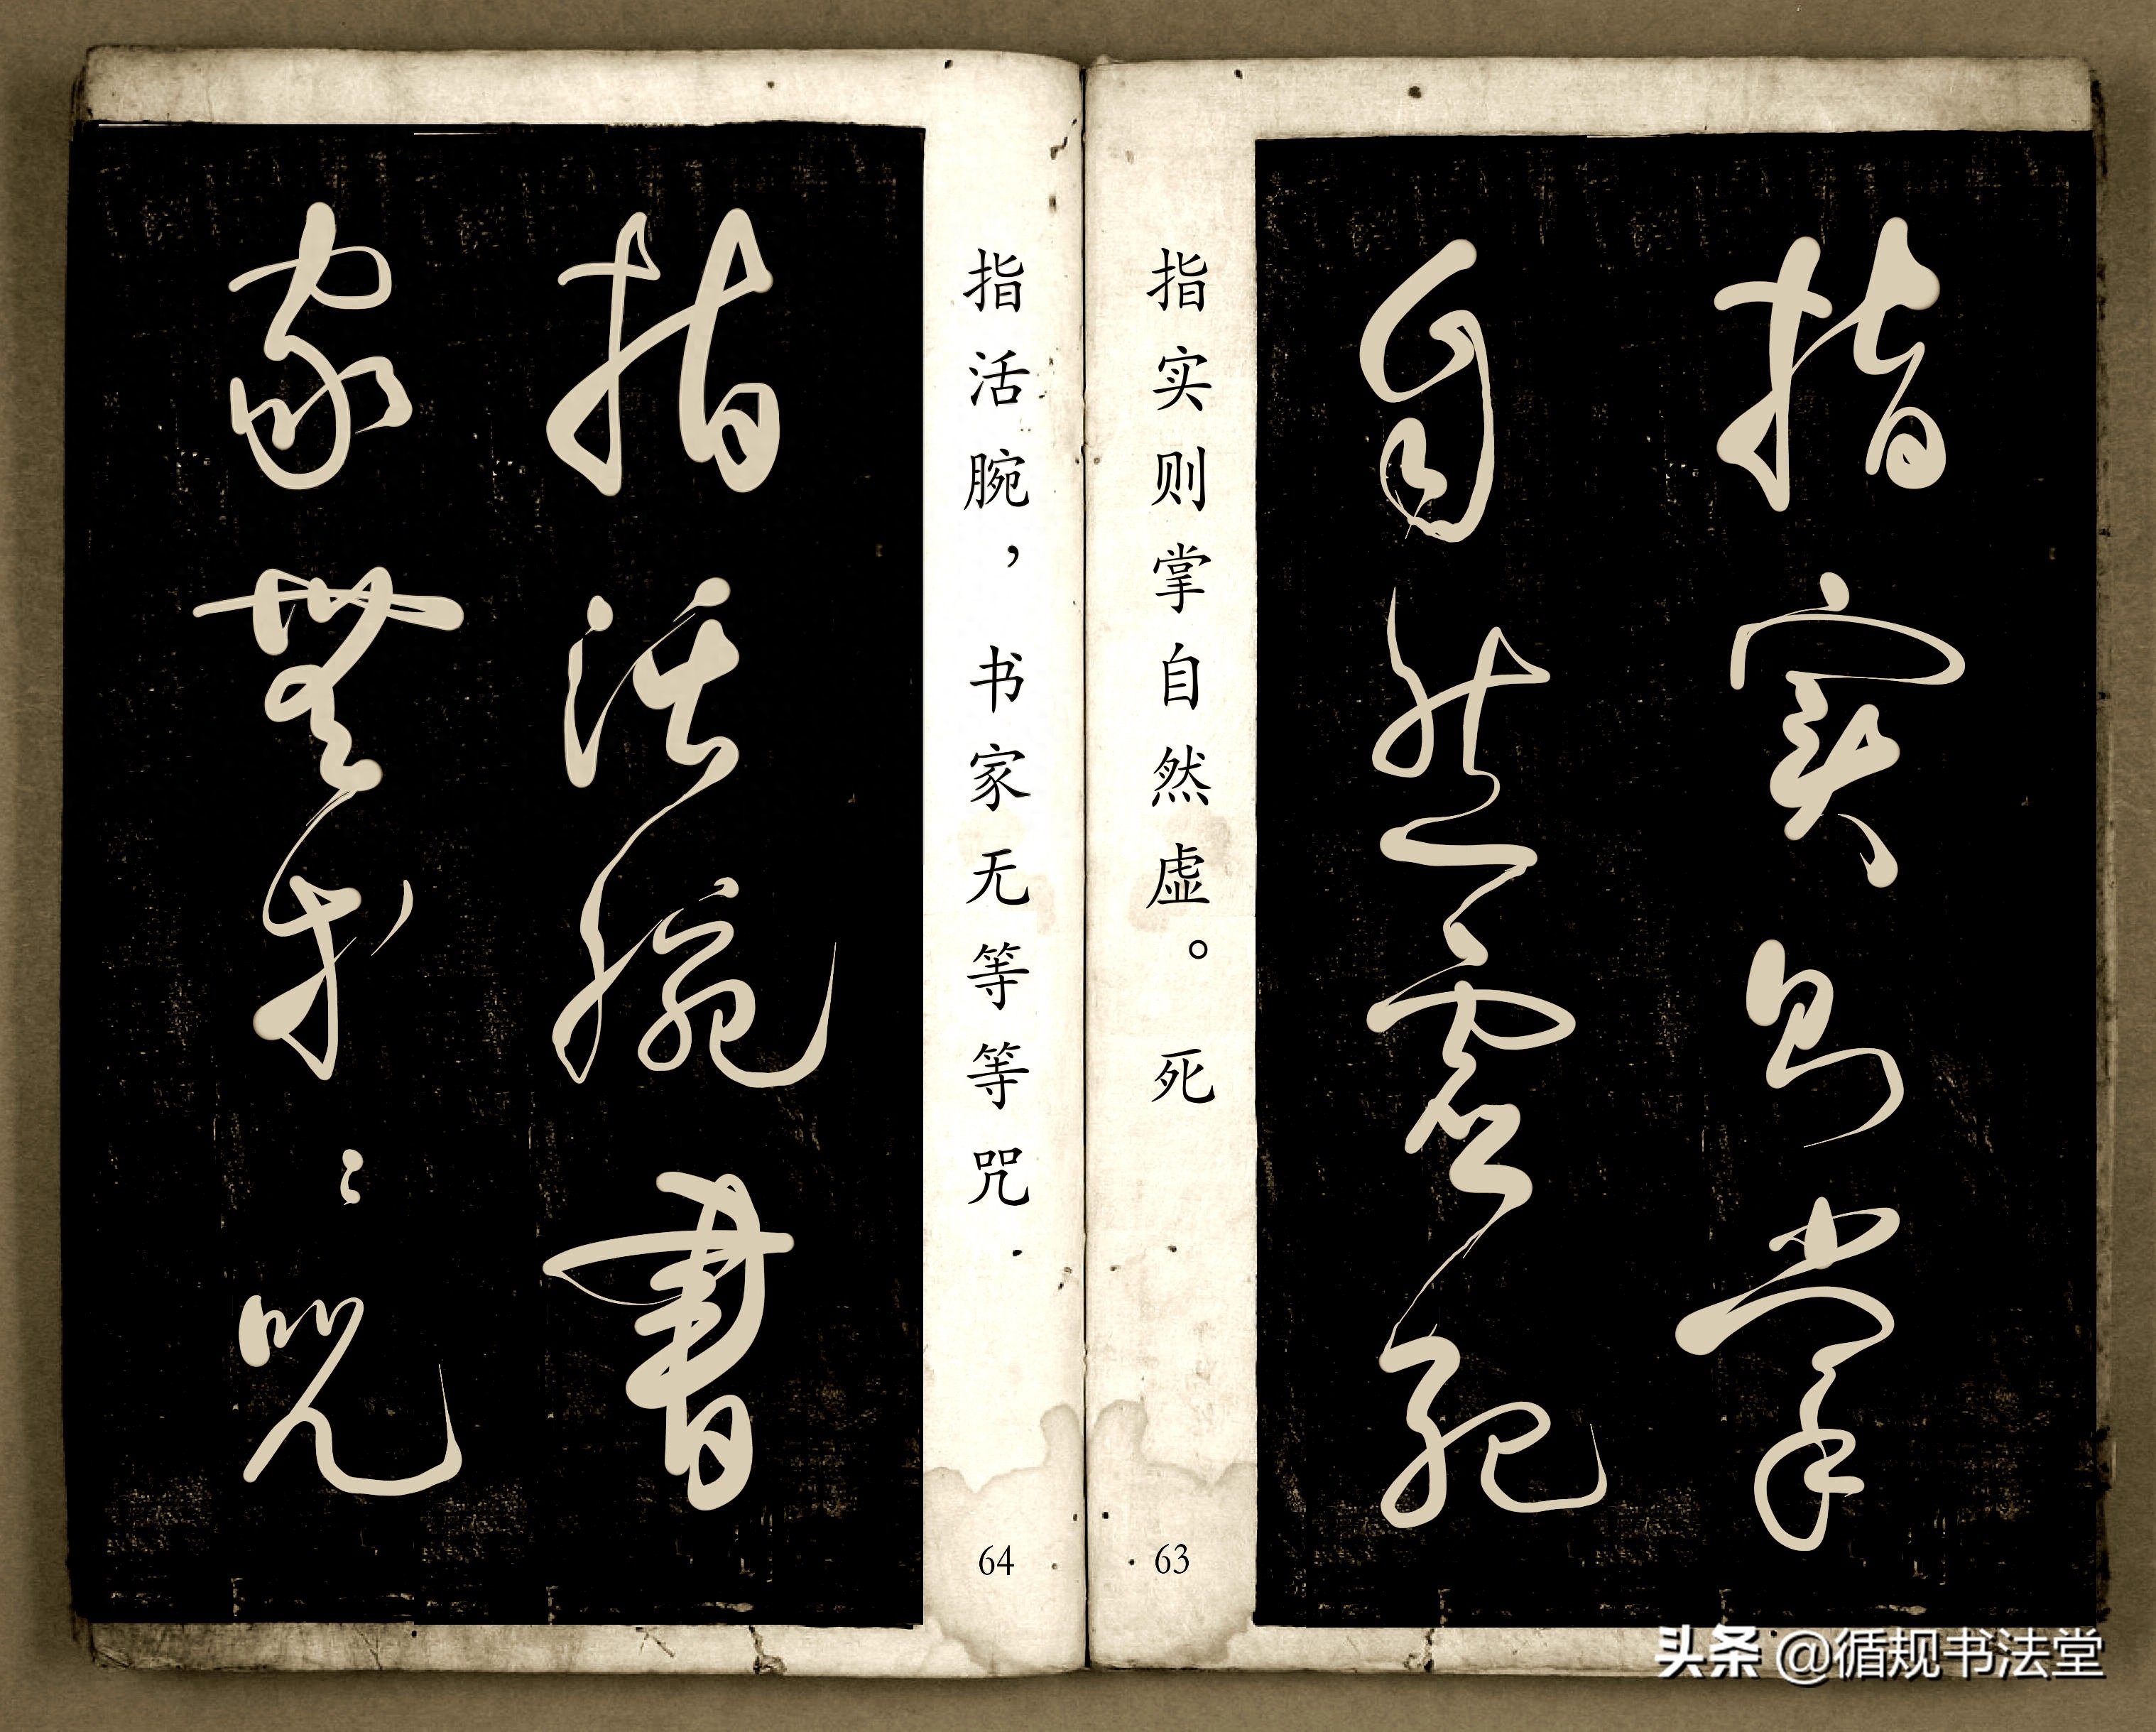 指實則掌
自然虛死
指实则掌自然虚。死
63
指活腕，书家无等等咒.
指活腕書
家無等〻咒
64
头条 @循规书法堂